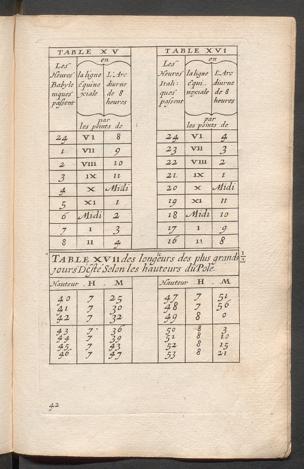 TABLE XV
en
Les Heures Babyloniques passent
la ligne Equinoxiale
L'Arc diurne de 8 heures
par les points de
24 VI 8
1 VII 9
2 VIII 10
3 IX 11
4 X Midi
5 XI 1
6 Midi 2
7 I 3
8 II 4
TABLE XVI
en
Les Heures Italiques passent
la ligne Equinoxiale
L'Arc diurne de 8 heures
par les points de
24 VI 4
23 VII 3
22 VIII 2
21 IX 1
20 X Midi
19 XI 11
18 Midi 10
17 I 9
16 II 8
TABLE XVII des longeurs des plus grands
jours D'esté Selon les hauteurs du Pole.
Hauteur H. M
40 7 25
41 7 30
42 7 32
43 7 36
44 7 39
45 7 43
46 7 47
Hauteur H. M
47 7 51
48 7 56
49 8 0
50 8 3
51 8 10
52 8 15
53 8 21
42